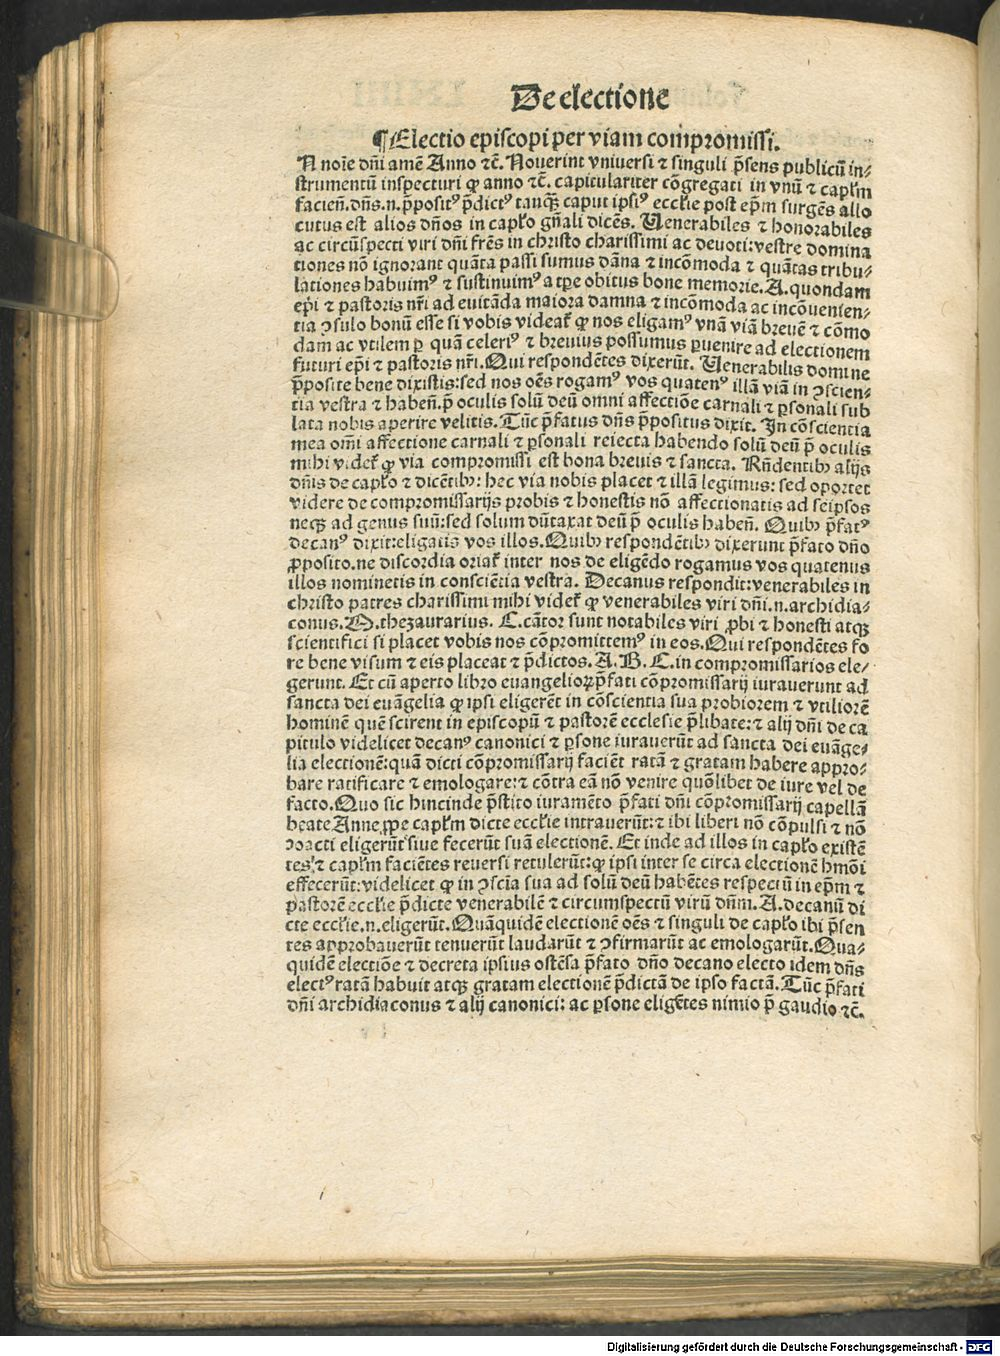 De electione
¶Electio episcopi per viam compromissi.
N noīe dn̄i amē Anno ⁊c̄. Nouerint vniuersi ⁊ singuli p̄sens publicū in⸗
strumentū inspecturi ꝙ anno ⁊c̄. capitulariter cōgregati in vnū ⁊ capl̄m
facien̄. dn̄s. n. p̄posit⁹ p̄dict⁹ tanqꝫ caput ipsi⁹ eccl̄ie post ep̄m surgēs allo
cutus est alios dn̄os in capl̄o gn̄ali dicēs. Venerabiles ⁊ honorabiles
ac circūspecti viri dn̄i frēs in christo charissimi ac deuoti:vestre domina
tiones nō ignorant quāta passi sumus dāna ⁊ incōmoda ⁊ quātas tribu⸗
lationes habuim⁹ ⁊ sustinuim⁹ a tꝑe obitus bone memorie. A. quondam
ep̄i ⁊ pastoris nr̄i ad euitāda maiora damna ⁊ incōmoda ac incōuenien⸗
tia ꝯsulo bonū esse si vobis videat̄ ꝙ nos eligam⁹ vnā viā breuē ⁊ cōmo
dam ac vtilem ꝑ quā celeri⁹ ⁊ breuius possumus ꝑuenire ad electionem
futuri ep̄i ⁊ pastoris nr̄i. Qui respondētes dixerūt. Venerabilis domine
p̄posite bene dixistis:sed nos oēs rogam⁹ vos quaten⁹ illā viā in ꝯscien⸗
tia vestra ⁊ haben̄. p̄ oculis solū deū omni affectiōe carnali ⁊ ꝑsonali sub
lata nobis aperire velitis. Tūc p̄fatus dn̄s p̄positus dixit. In cōscientia
mea om̄i affectione carnali ⁊ ꝑsonali reiecta habendo solū deū p̄ oculis
mihi videt̄ ꝙ via compromissi est bona breuis ⁊ sancta. Rn̄dentibꝫ alijs
dn̄is de capl̄o ⁊ dicētibꝫ: hec via nobis placet ⁊ illā legimus: sed oportet
videre de compromissarijs probis ⁊ honestis nō affectionatis ad seipsos
neqꝫ ad genus suū:sed solum dūtaxat deū p̄ oculis haben̄. Quibꝫ p̄fat⁹
decan⁹ dixit:eligatis vos illos. Quibꝫ respondētibꝫ dixerunt p̄fato dn̄o
ꝓposito.ne discordia oriat̄ inter nos de eligēdo rogamus vos quatenus
illos nominetis in consciētia vestra. Decanus respondit:venerabiles in
christo patres charissimi mihi videt̄ ꝙ venerabiles viri dn̄i.n.archidia⸗
conus. B. thezaurarius. C. cātor sunt notabiles viri ꝓbi ⁊ honesti atqꝫ
scientifici si placet vobis nos cōpromittem⁹ in eos. Qui respondētes fo
re bene visum ⁊ eis placeat ⁊ p̄dictos. A. B. C. in compromissarios ele⸗
gerunt. Et cū aperto libro euangelioꝝ p̄fati cōpromissarij iurauerunt ad
sancta dei euāgelia ꝙ ipsi eligerēt in cōscientia sua probiorem ⁊ vtiliorē
hominē quē scirent in episcopū ⁊ pastorē ecclesie p̄libate:⁊ alij dn̄i de ca
pitulo videlicet decan⁹ canonici ⁊ ꝑsone iurauerūt ad sancta dei euāge⸗
lia electionē:quā dicti cōpromissarij faciēt ratā ⁊ gratam habere appro⸗
bare ratificare ⁊ emologare:⁊ cōtra eā nō venire quōlibet de iure vel de
facto. Quo sic hincinde p̄stito iuramēto p̄fati dn̄i cōpromissarij capellā
beate Anne ꝓpe capl̄m dicte eccl̄ie intrauerūt:⁊ ibi liberi nō cōpulsi ⁊ nō
ꝯoacti eligerūt siue fecerūt suā electionē. Et inde ad illos in capl̄o existē
tes ⁊ capl̄m faciētes reuersi retulerūt:ꝙ ipsi inter se circa electionē hmōi
effecerūt:videlicet ꝙ in ꝯscīa sua ad solū deū habētes respectū in ep̄m ⁊
pastorē eccl̄ie p̄dicte venerabilē ⁊ circumspectū virū dn̄m. A. decanū di
cte eccl̄ie.n.eligerūt. Quāquidē electionē oēs ⁊ singuli de capl̄o ibi p̄sen
tes approbauerūt tenuerūt laudarūt ⁊ ꝯfirmarūt ac emologarūt. Qua⸗
quidē electiōe ⁊ decreta ipsius ostēsa p̄fato dn̄o decano electo idem dn̄s
elect⁹ ratā habuit atqꝫ gratam electionē p̄dictā de ipso factā. Tūc p̄fati
dn̄i archidiaconus ⁊ alij canonici: ac ꝑsone eligētes nimio p̄ gaudio ⁊c̄.
Digitalisierung gefördert durch die Deutsche Forschungsgemeinschaft - DFG